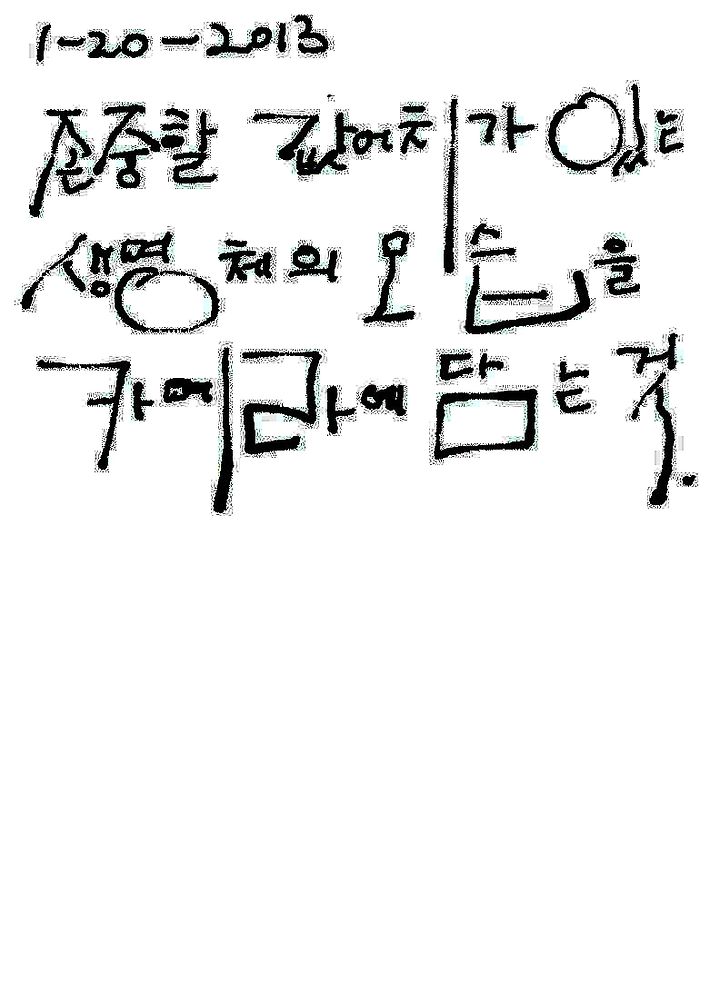 1-20-2013
존중할 값어치가 있는
생명체의 모습을
카메라에 담는 것.